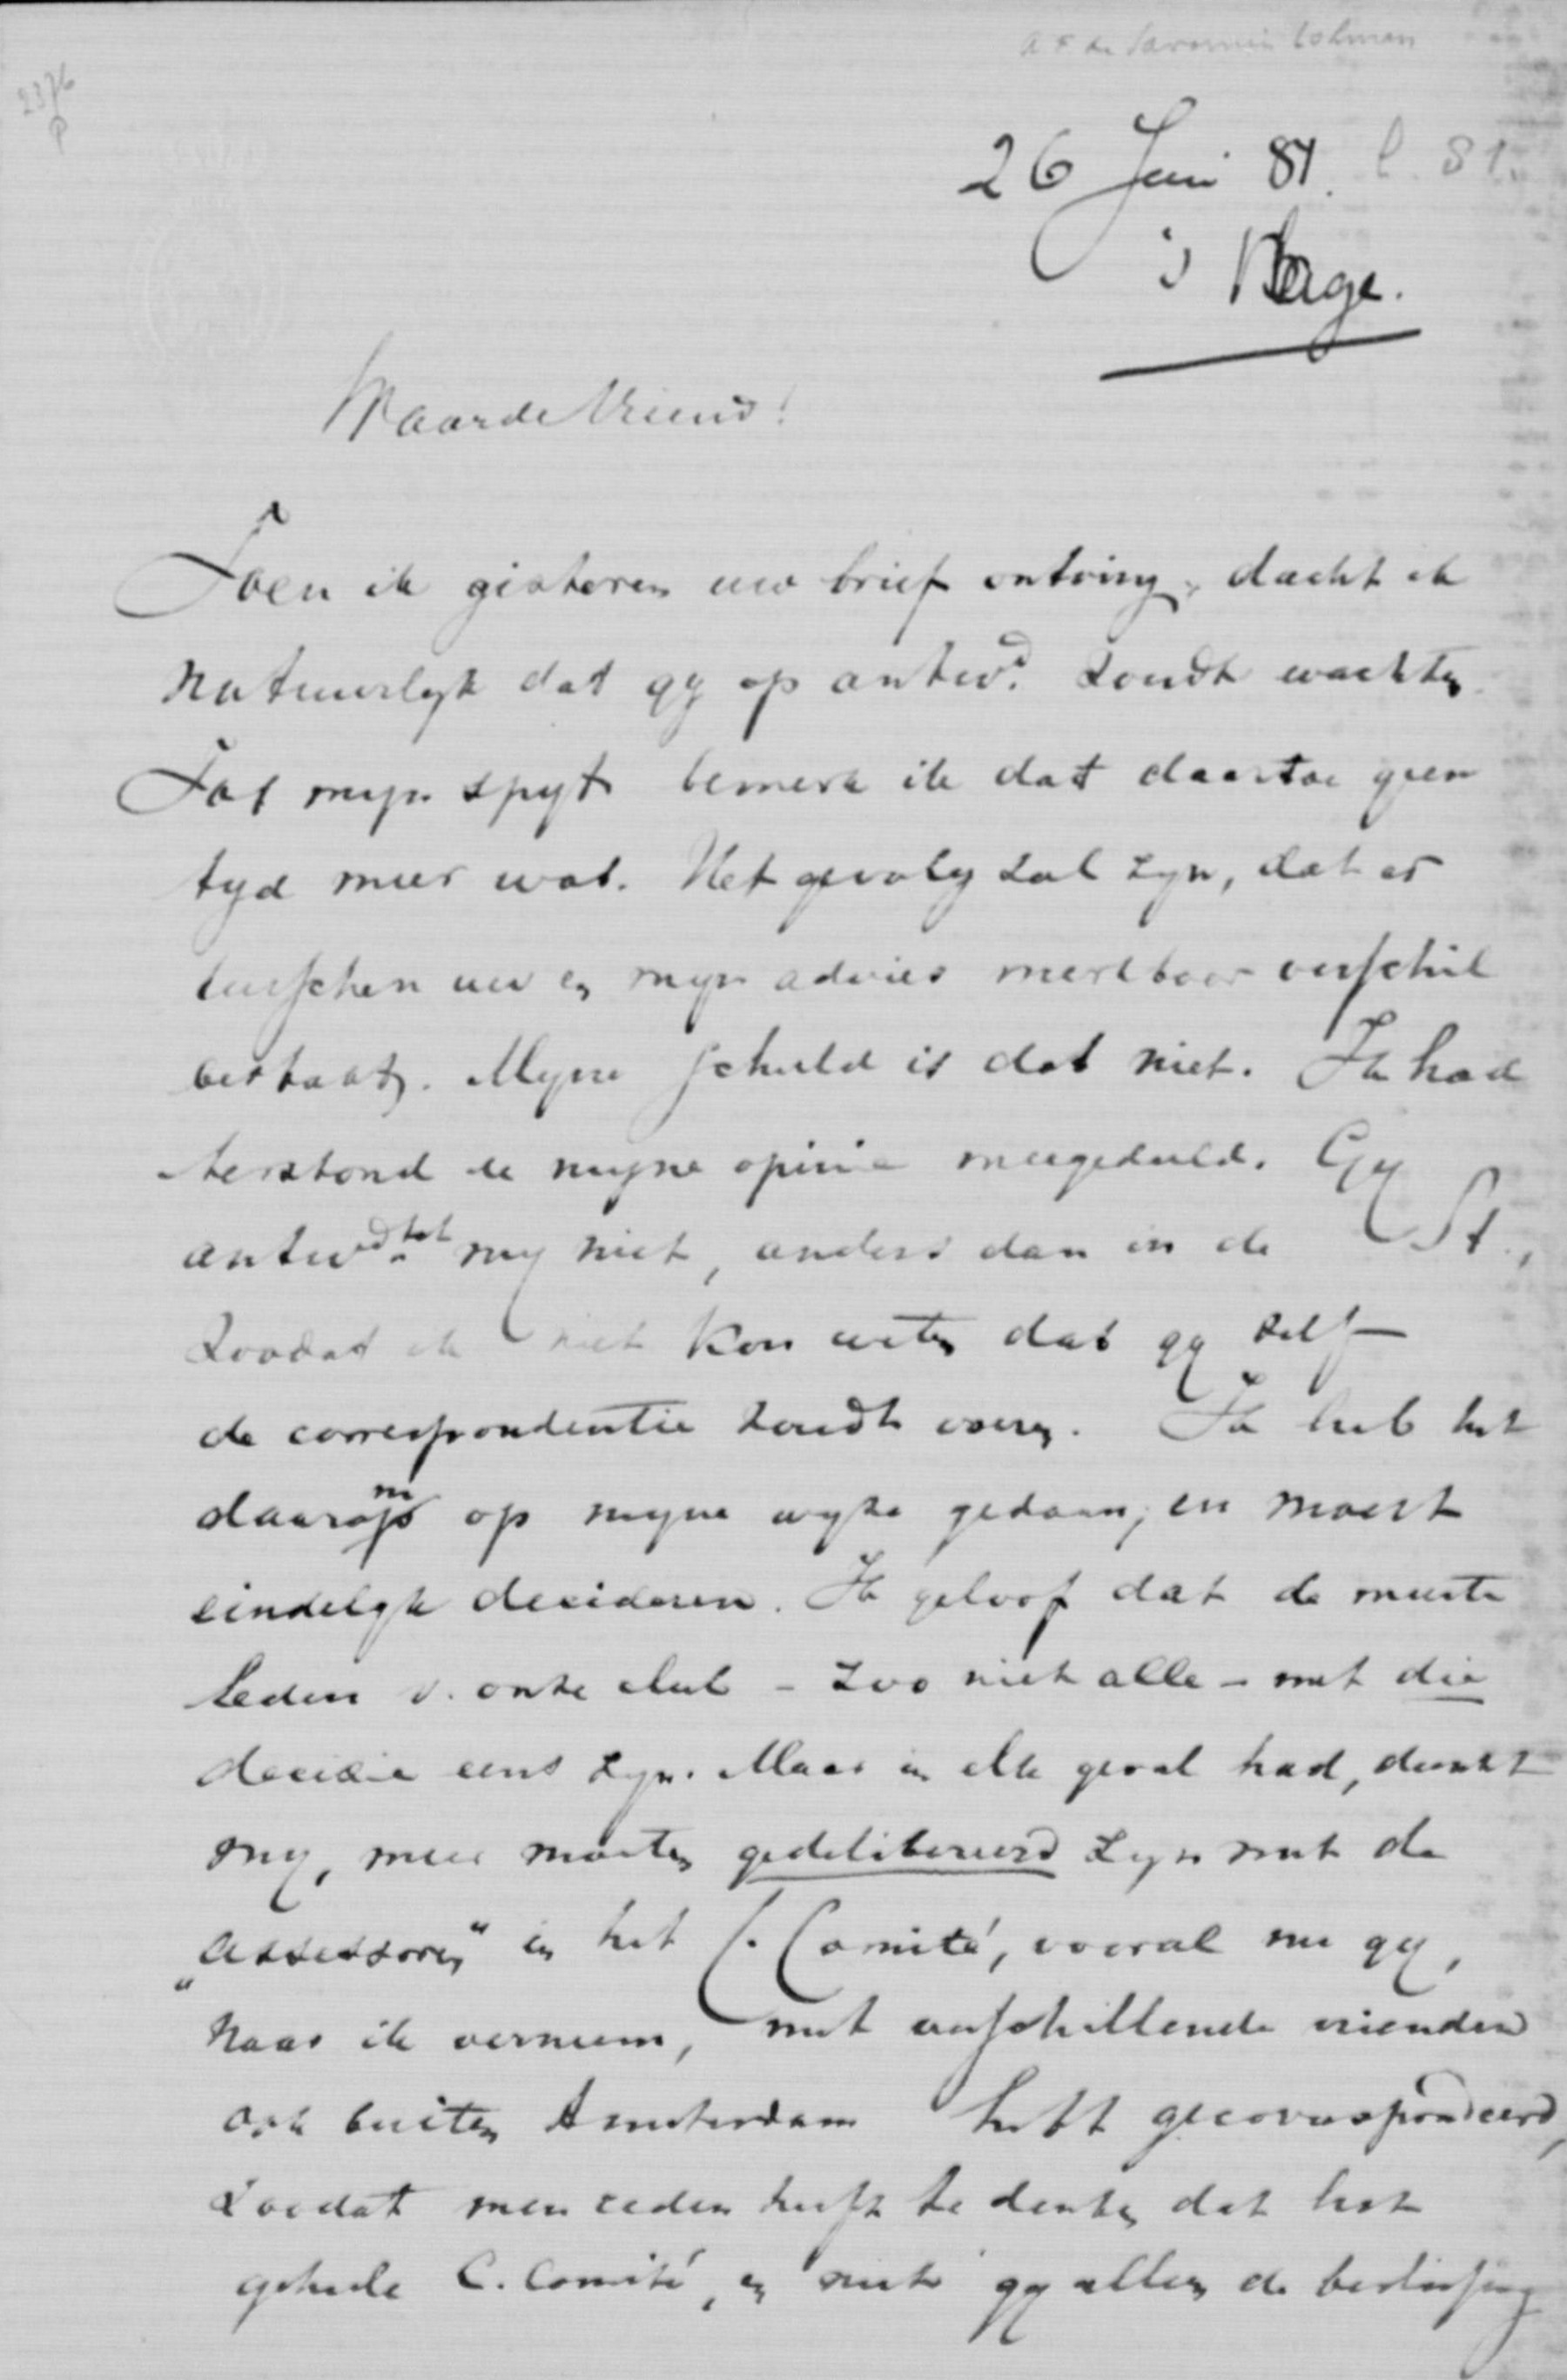 A F de Savornin Lohman
2376
P
26 Juni 81. l. 81.
's Hage.
Waarde Vriend!
Toen ik gisteren uw brief ontving, dacht ik
natuurlyk dat gy op antwd. zoudt wachten
Tot myn spyt bemerk ik dat daartoe geen
tyd meer was. Het gevolg zal zyn, dat er
tusschen uw en myn advies merkbaar verschil
bestaat. Myne schuld is dat niet. Ik had
terstond de myne opinie meegedeeld. Gy
antwd.tet my niet, anders dan in de St.,
zoodat ik niet kon weten dat gy zelf
de correspondentie zoudt voeren. Ik heb het
daarom op myne wyze gedaan, en moest
eindelyk decideren. Ik geloof dat de meeste
leden v. onze club - zoo niet alle - met die
decisie eens zyn. Maar in elk geval had, dunkt
my, meer moeten gedelibereerd zyn met de
"assessoren" en het C. Comité, vooral nu gy,
naar ik verneem, met verschillende vrienden
ook buiten Amsterdam hebt gecorrespondeerd,
zoodat men reden heeft te denken dat het
geheele C. Comité, en niet gy alleen de beslissing